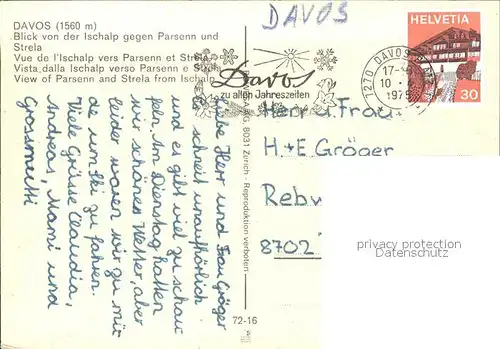 DAVOS (1560 m)
Blick von der Ischalp gegen Parsenn und
Strela
Vue de l'Ischalp vers Parsenn et Strela
Vista dalla Ischalp verso Parsenn e
View of Parsenn and Strela from Ischalp
DAVOS
HELVETIA
30
7270 DAVOS
17-
10
1975
Davos
zu allen Jahreszeiten
Liebe Herr und Frau Gröger
Es schneit unaufhörlich
und es gibt viel zu schau-
feln. Am Dienstag hatten
wir schönes Wetter, aber
leider waren wir zu mü-
de um Ski zu fahren.
Viele Grüsse Claudia,
Andreas, Mami und
Grossmutti
AG, 8031 Zürich - Reproduktion verboten
72-16
Herr u Frau
H.+E Gröger
Reb
8702
privacy protection
Datenschutz